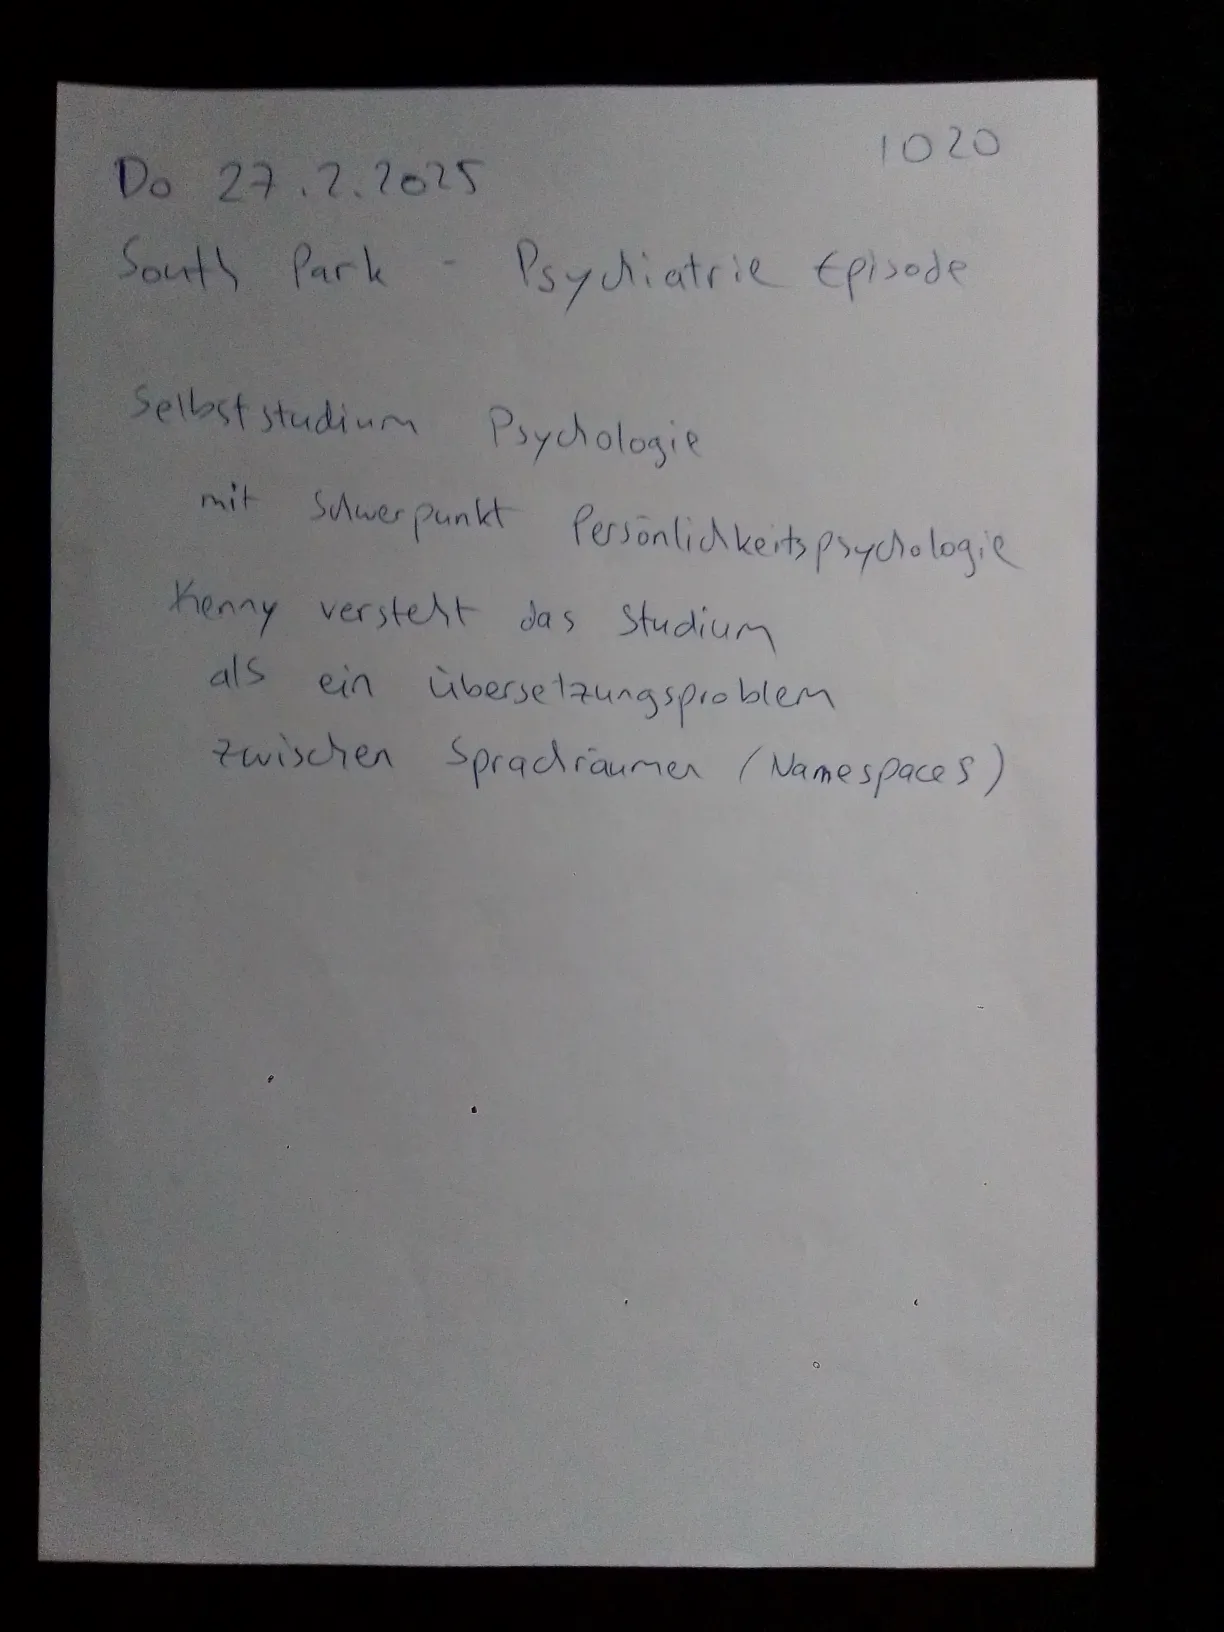 1020
Do 27.2.2025
South Park - Psychiatrie Episode
Selbststudium Psychologie
mit Schwerpunkt Persönlichkeitspsychologie
Kenny versteht das Studium
als ein Übersetzungsproblem
zwischen Sprachräumen (Namespaces)